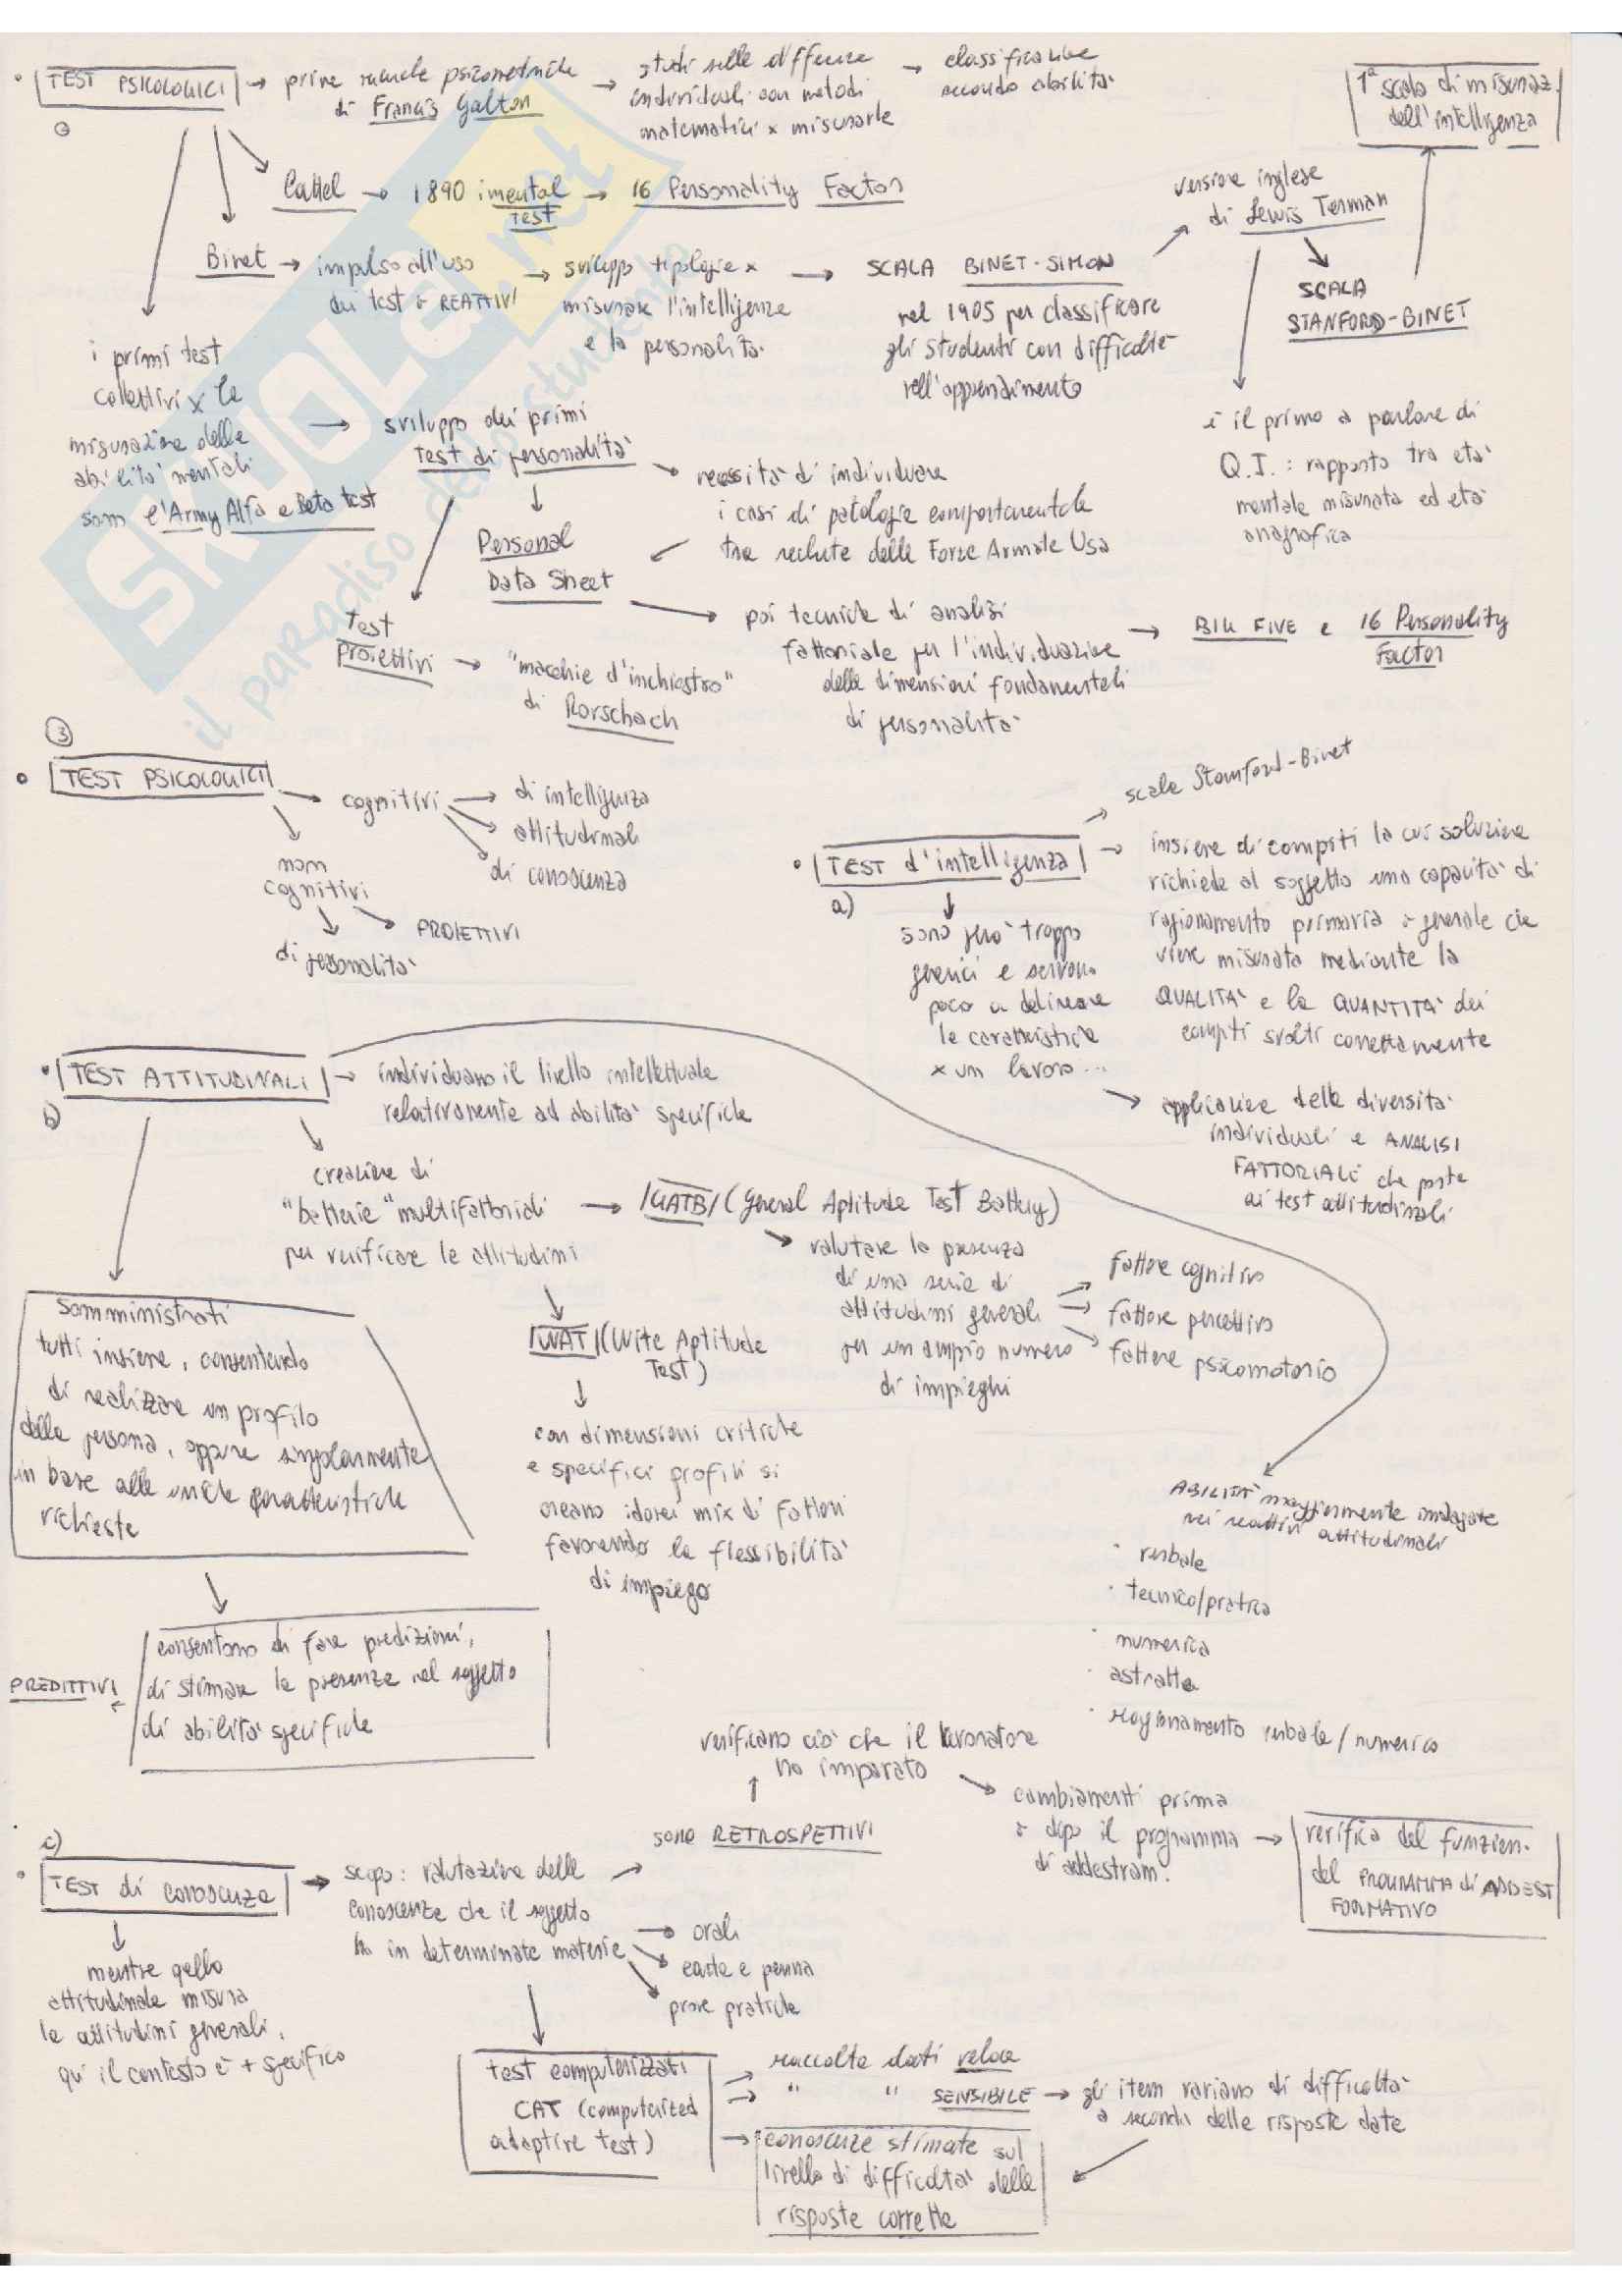 TEST PSICOLOGICI → prime ricerche psicometriche
di Francis Galton
→ studi sulle differenze
individuali con metodi
matematici x misurarle
→ classificazione
secondo abilità
1ª scala di misuraz.
dell'intelligenza
Cattel → 1890 mental → 16 Personality Factor
test
Binet → impulso all'uso
dei test o REATTIVI
→ sviluppo tipologie x
misurare l'intelligenza
e la personalità.
→ SCALA BINET-SIMON
nel 1905 per classificare
gli studenti con difficoltà
nell'apprendimento
versione inglese
di Lewis Terman
SCALA
STANFORD-BINET
è il primo a parlare di
Q.I. : rapporto tra età
mentale misurata ed età
anagrafica
i primi test
collettivi x la
misurazione delle
abilità mentali
sono l'Army Alfa e Beta test
→ sviluppo dei primi
test di personalità
necessità di individuare
i casi di patologie comportamentale
tra reclute delle Forze Armate Usa
Personal
Data Sheet
poi tecniche di analisi
fattoriale per l'individuazione
delle dimensioni fondamentali
di personalità
→ BIG FIVE e 16 Personality
Factor
Test
Proiettivi → "macchie d'inchiostro"
di Rorschach
SKUOLA.net
il paradiso dello studente
3
TEST PSICOLOGICI
→ cognitivi → di intelligenza
attitudinali
di conoscenza
non
cognitivi
PROIETTIVI
di personalità
TEST d'intelligenza
a)
scale Stanford-Binet
→ insieme di compiti la cui soluzione
richiede al soggetto una capacità di
ragionamento primaria o generale che
viene misurata mediante la
QUALITÀ e la QUANTITÀ dei
compiti svolti correttamente
sono però troppo
generici e servono
poco a delineare
le caratteristiche
x un lavoro...
→ applicazione delle diversità
individuali e ANALISI
FATTORIALE che porta
ai test attitudinali
TEST ATTITUDINALI → individuano il livello intellettuale
relativamente ad abilità specifiche
b)
creazione di
"batterie" multifattoriali
per verificare le attitudini
→ GATB (General Aptitude Test Battery)
valutare la presenza
di una serie di
attitudini generali
per un ampio numero
di impieghi
fattore cognitivo
fattore percettivo
fattore psicomotorio
WAT (Wite Aptitude
Test)
con dimensioni critiche
e specifici profili si
creano idonei mix di fattori
favorendo la flessibilità
di impiego
somministrati
tutti insieme, consentendo
di realizzare un profilo
della persona, oppure singolarmente
in base alle uniche caratteristiche
richieste
consentono di fare predizioni,
di stimare la presenza nel soggetto
di abilità specifiche
PREDITTIVI ←
ABILITÀ maggiormente indagate
nei reattivi attitudinali
· verbale
· tecnico/pratica
· numerica
· astratta
· ragionamento verbale / numerico
verificano ciò che il lavoratore
ha imparato
sono RETROSPETTIVI
cambiamenti prima
e dopo il programma
di addestram.
→ verifica del funzion.
del PROGRAMMA di ADDEST
FORMATIVO
c)
TEST di conoscenza → scopo: valutazione delle
conoscenze che il soggetto
ha in determinate materie
→ orali
carta e penna
prove pratiche
mentre quello
attitudinale misura
le attitudini generali,
qui il contesto è + specifico
test computerizzati
CAT (computerized
adaptive test)
→ raccolta dati veloce
→ " " SENSIBILE → gli item variano di difficoltà
a seconda delle risposte date
→ conoscenze stimate sul
livello di difficoltà delle
risposte corrette